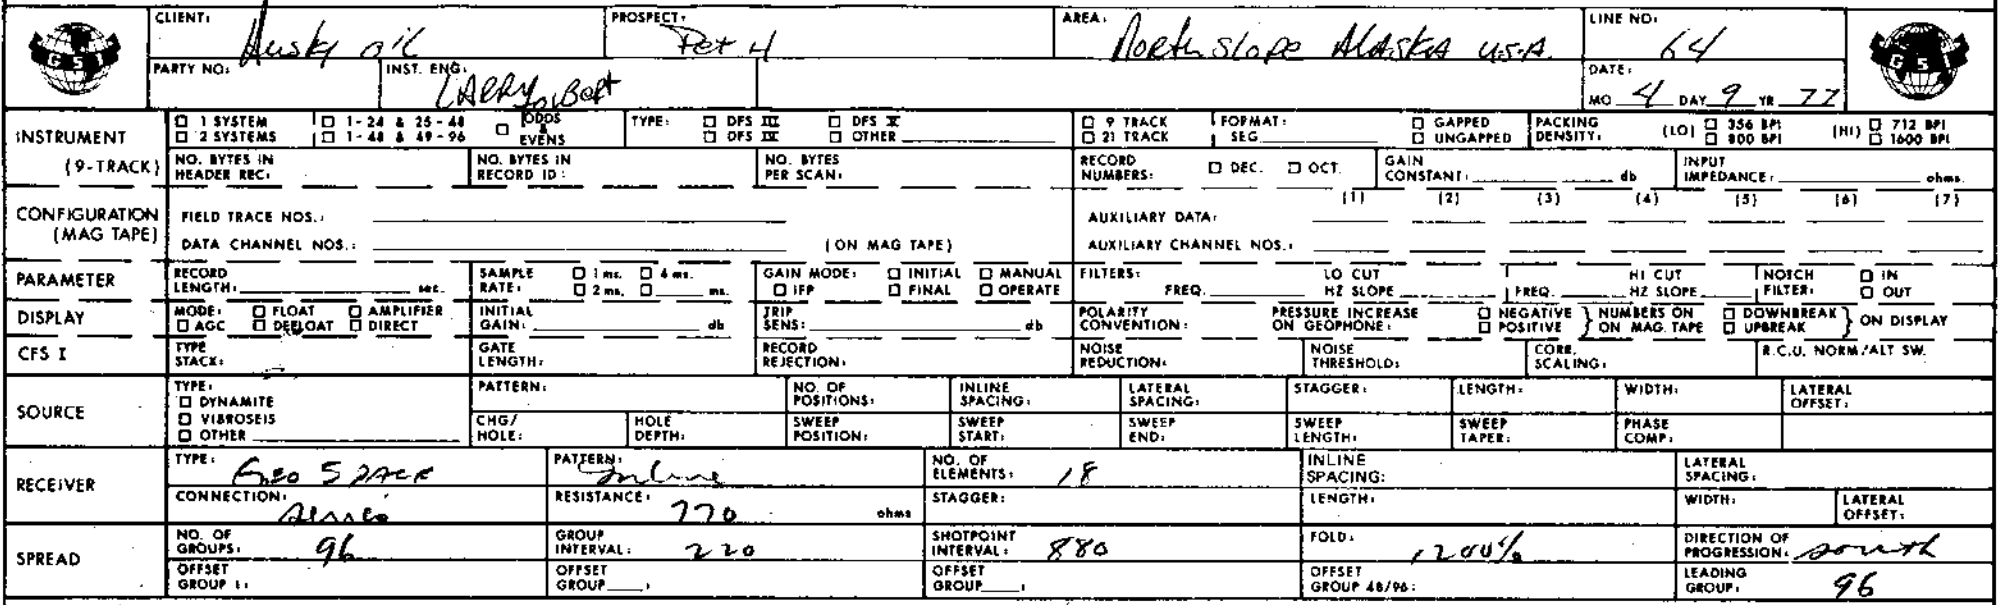 CLIENT: Husky oil PROSPECT: Pet 4 AREA: North slope ALASKA U.S.A. LINE NO: 64
GSI GSI
PARTY NO: INST. ENG: LARRY Bert DATE: MO 4 DAY 9 YR 77
INSTRUMENT (9-TRACK) □ 1 SYSTEM □ 1-24 & 25-48 □ ODDS & EVENS TYPE: □ DFS III □ DFS V □ 9 TRACK FORMAT: □ GAPPED PACKING DENSITY: (LO) □ 356 BPI (HI) □ 712 BPI
□ 2 SYSTEMS □ 1-48 & 49-96 □ DFS IV □ OTHER □ 21 TRACK SEG □ UNGAPPED □ 800 BPI □ 1600 BPI
NO. BYTES IN HEADER REC: NO. BYTES IN RECORD ID: NO. BYTES PER SCAN: RECORD NUMBERS: □ DEC. □ OCT. GAIN CONSTANT: db INPUT IMPEDANCE: ohms.
CONFIGURATION (MAG TAPE) FIELD TRACE NOS.: AUXILIARY DATA: (1) (2) (3) (4) (5) (6) (7)
DATA CHANNEL NOS.: (ON MAG TAPE) AUXILIARY CHANNEL NOS.:
PARAMETER RECORD LENGTH: sec. SAMPLE RATE: □ 1 ms. □ 4 ms. □ 2 ms. □ ms. GAIN MODE: □ INITIAL □ MANUAL □ IFP □ FINAL □ OPERATE FILTERS: FREQ. LO CUT HZ SLOPE FREQ. HI CUT HZ SLOPE NOTCH FILTER: □ IN □ OUT
DISPLAY MODE: □ FLOAT □ AMPLIFIER □ AGC □ DEFLOAT □ DIRECT INITIAL GAIN: db TRIP SENS: db POLARITY CONVENTION: PRESSURE INCREASE ON GEOPHONE: □ NEGATIVE □ POSITIVE } NUMBERS ON MAG. TAPE □ DOWNBREAK □ UPBREAK } ON DISPLAY
CFS I TYPE STACK: GATE LENGTH: RECORD REJECTION: NOISE REDUCTION: NOISE THRESHOLD: CORR. SCALING: R.C.U. NORM/ALT SW.
SOURCE TYPE: □ DYNAMITE □ VIBROSEIS □ OTHER PATTERN: NO. OF POSITIONS: INLINE SPACING: LATERAL SPACING: STAGGER: LENGTH: WIDTH: LATERAL OFFSET:
CHG/HOLE: HOLE DEPTH: SWEEP POSITION: SWEEP START: SWEEP END: SWEEP LENGTH: SWEEP TAPER: PHASE COMP:
RECEIVER TYPE: Geo SPACE PATTERN: Inline NO. OF ELEMENTS: 18 INLINE SPACING: LATERAL SPACING:
CONNECTION: Series RESISTANCE: 770 ohms STAGGER: LENGTH: WIDTH: LATERAL OFFSET:
SPREAD NO. OF GROUPS: 96 GROUP INTERVAL: 220 SHOTPOINT INTERVAL: 880 FOLD: 1200% DIRECTION OF PROGRESSION: south
OFFSET GROUP 1: OFFSET GROUP : OFFSET GROUP : OFFSET GROUP 48/96: LEADING GROUP: 96